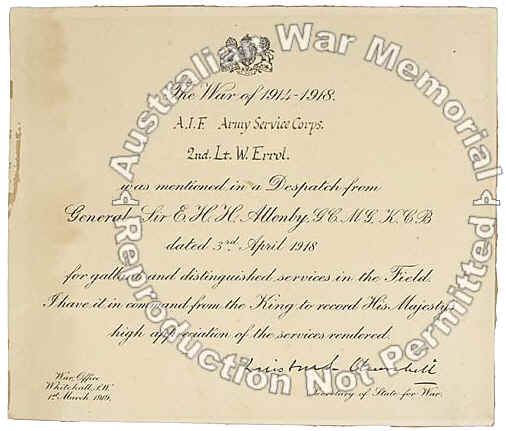 The War of 1914-1918.
A.I.F. Army Service Corps.
2nd. Lt. W. Errol.
was mentioned in a Despatch from
General Sir E. H. H. Allenby, G.C.M.G. K.C.B
dated 3rd April 1918
for gallant and distinguished services in the Field.
I have it in command from the King to record His Majesty's
high appreciation of the services rendered.
Winston S. Churchill
War Office
Whitehall, S.W.
1st March 1919.
Secretary of State for War.
Australian War Memorial
Reproduction Not Permitted